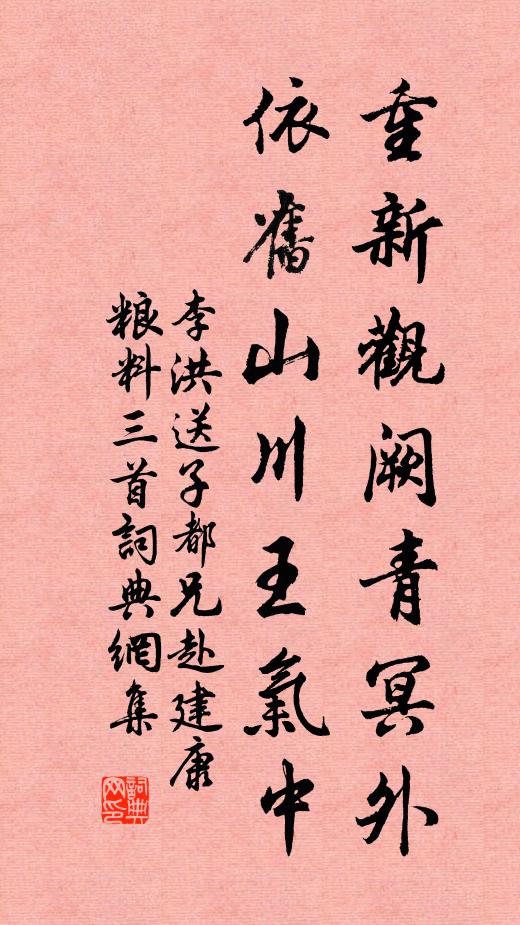 重新觀阙青冥外
依舊山川王氣中
李洪送子都兄赴建康
粮料三首詞典網集
詞典
网印